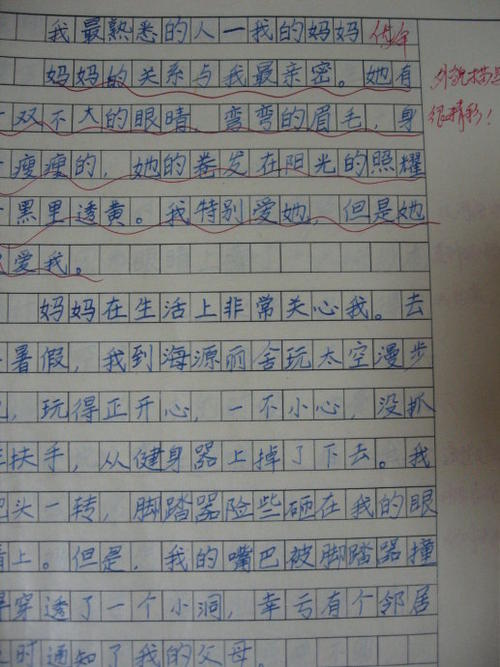 我最熟悉的人—我的妈妈
妈妈的关系与我最亲密。她有
双不大的眼睛，弯弯的眉毛，身
瘦瘦的，她的卷发在阳光的照耀
黑里透黄。我特别爱她，但是她
爱我。
妈妈在生活上非常关心我。去
暑假，我到海源丽舍玩太空漫步
，玩得正开心，一不小心，没抓
扶手，从健身器上掉了下去。我
头一转，脚踏器险些砸在我的眼
上。但是，我的嘴巴被脚踏器撞
得穿透了一个小洞，幸亏有个邻居
及时通知了我的父母。
外貌描写
很精彩！